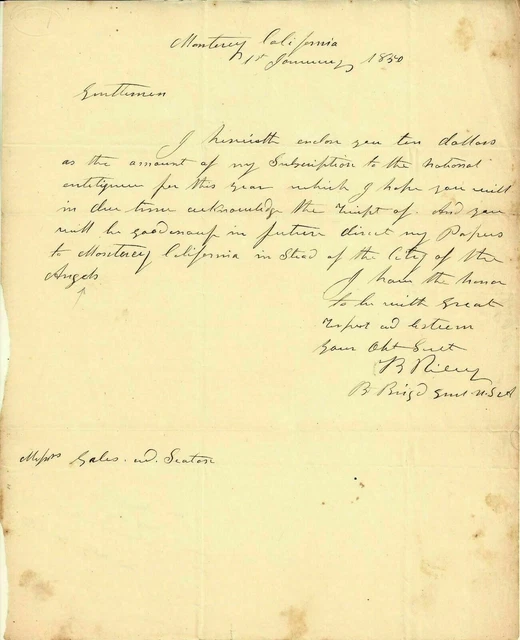 Monterey California
1st January 1850
Gentlemen
I herewith enclose you ten dollars
as the amount of my Subscription to the national
inteligencer for this year which I hope you will
in due time acknowledge the receipt of. And you
will be good enough in future direct my Papers
to Monterey California in Stead of the City of the
Angels
I have the honor
to be with great
respect and esteem
your Obt Servt
B Riley
Bt Brigd Genl U.S.A
Messrs Gales and Seaton